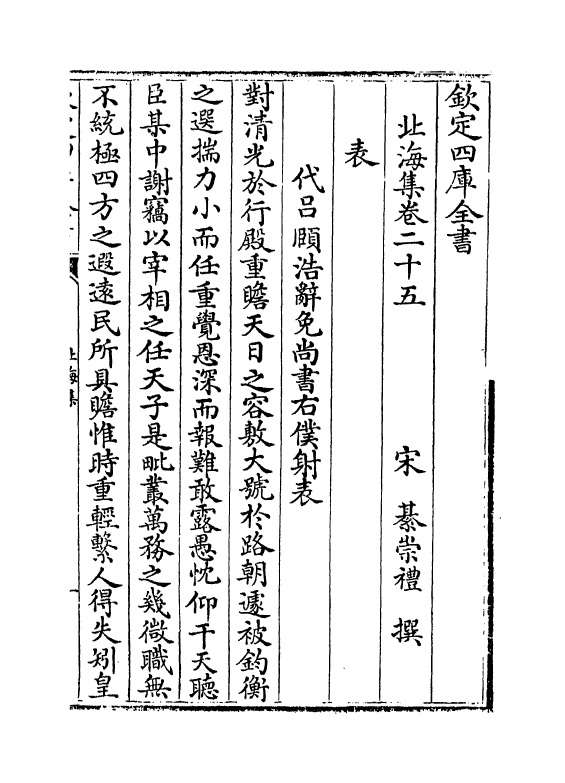 欽定四庫全書
北海集卷二十五　宋　綦崇禮　撰
表
代呂頤浩辭免尚書右僕射表
對清光於行殿重瞻天日之容敷大號於路朝遽被鈞衡
之選揣力小而任重覺恩深而報難敢露愚忱仰干天聽
臣某中謝竊以宰相之任天子是毗叢萬務之幾微職無
不統極四方之遐遠民所具瞻惟時重輕繫人得失矧皇
北海集
一